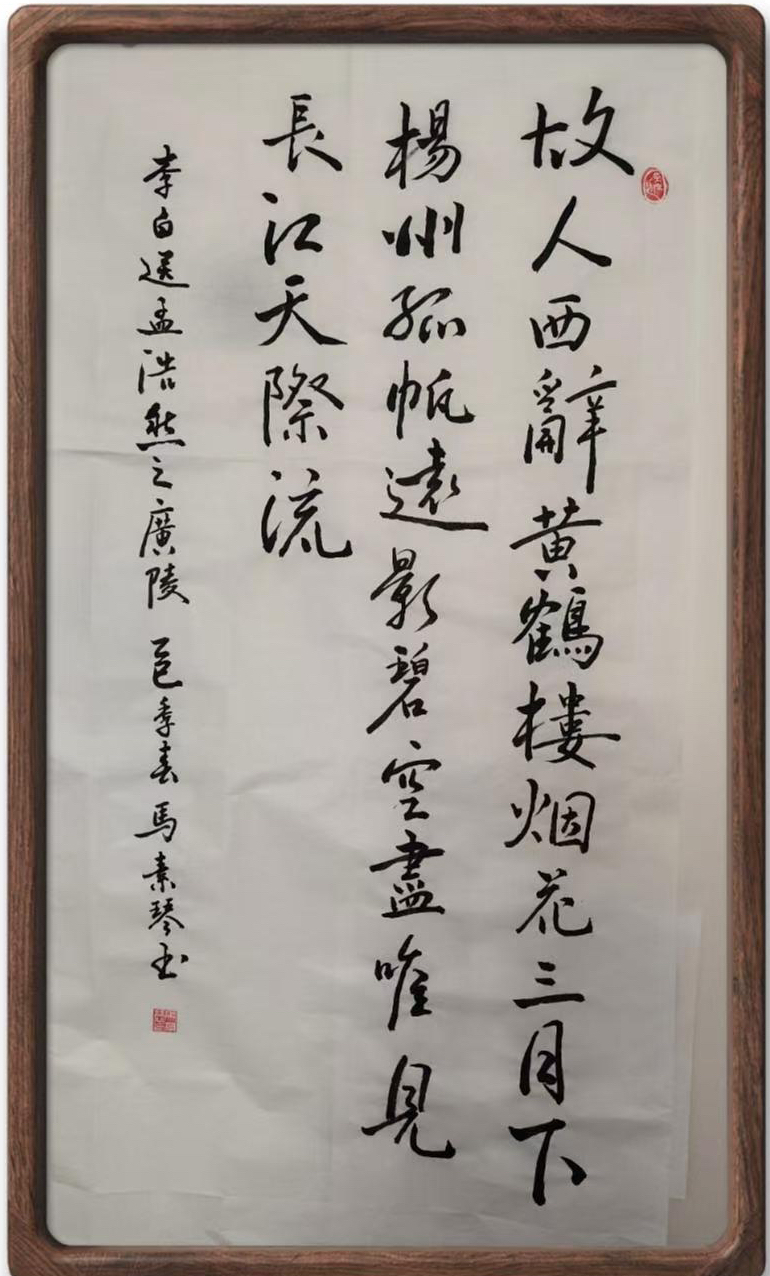 故人西辭黄鶴楼烟花三月下
楊州孤帆遠影碧空盡唯見
長江天際流
李白送孟浩然之廣陵 季春馬素琴书